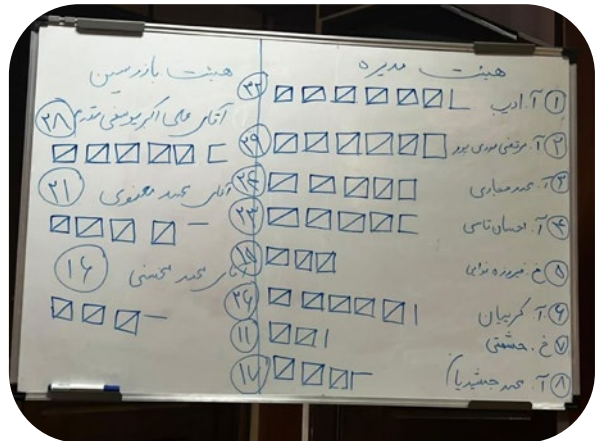 هیئت مدیره
① آ. ادیب ۳۲
② آ. مرتضی نوری پور ۲۹
③ آ. محمد حجازی ۲۴
④ آ. احسان ۲۳
⑤ خ. فیروزه ۱۵
⑥ آ. کریمیان ۲۶
⑦ خ. حشمتی ۱۱
⑧ آ. محمد جمشیدیا ۱۷
هیئت بازرسین
آقای علی اکبر یوسفی ۲۸
آقای محمد معنوی ۲۱
آقای محمد محسنی ۱۶